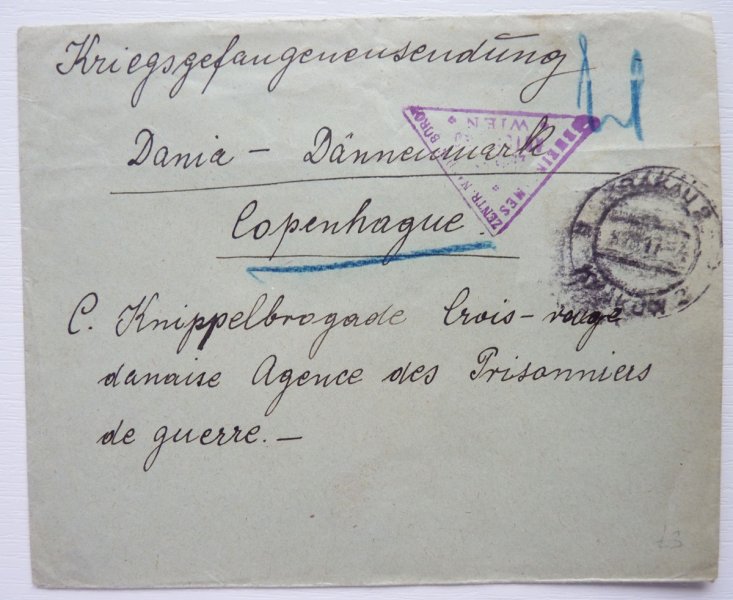 Kriegsgefangenensendung
Dania - Dännenmark
Copenhague.
C. Knippelbrogade Crois-rouge
danaise Agence des Prisonniers
de guerre. -
WIEN
ZENTR. NACHW. BÜRO
KRAKAU 2
KRAKÓW 2